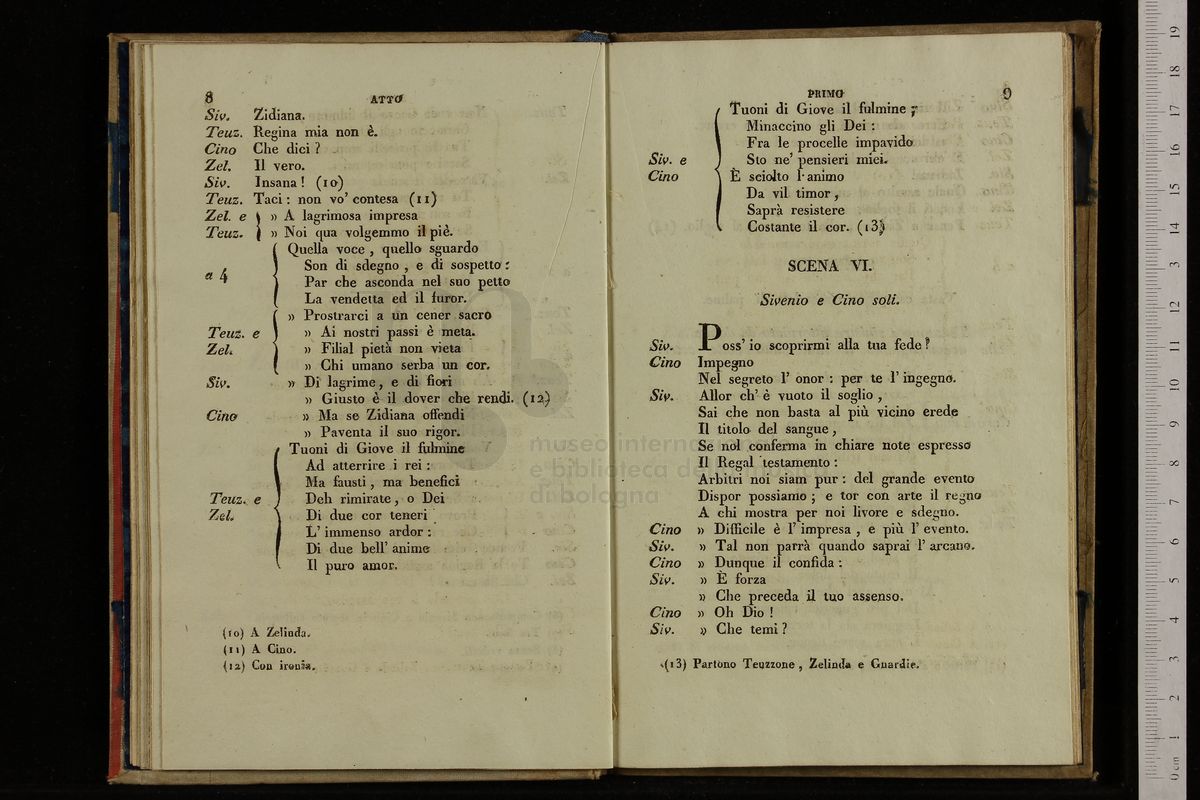 8 ATTO
Siv. Zidiana.
Teuz. Regina mia non è.
Cino Che dici ?
Zel. Il vero.
Siv. Insana ! (10)
Teuz. Taci : non vo' contesa (11)
Zel. e » A lagrimosa impresa
Teuz. » Noi qua volgemmo il piè.
Quella voce , quello sguardo
a 4 Son di sdegno , e di sospetto :
Par che asconda nel suo petto
La vendetta ed il furor.
» Prostrarci a un cener sacro
Teuz. e » Ai nostri passi è meta.
Zel. » Filial pietà non vieta
» Chi umano serba un cor.
Siv. » Di lagrime , e di fiori
» Giusto è il dover che rendi. (12)
Cino » Ma se Zidiana offendi
» Paventa il suo rigor.
Tuoni di Giove il fulmine
Ad atterrire i rei :
Ma fausti , ma benefici
Teuz. e Deh rimirate , o Dei
Zel. Di due cor teneri
L' immenso ardor :
Di due bell' anime
Il puro amor.
(10) A Zelinda.
(11) A Cino.
(12) Con ironia.
PRIMO 9
Tuoni di Giove il fulmine ;
Minaccino gli Dei :
Fra le procelle impavido
Siv. e Sto ne' pensieri miei.
Cino È sciolto l' animo
Da vil timor ,
Saprà resistere
Costante il cor. (13)
SCENA VI.
Sivenio e Cino soli.
Siv. Poss' io scoprirmi alla tua fede ?
Cino Impegno
Nel segreto l' onor : per te l' ingegno.
Siv. Allor ch' è vuoto il soglio ,
Sai che non basta al più vicino erede
Il titolo del sangue ,
Se nol conferma in chiare note espresso
Il Regal testamento :
Arbitri noi siam pur : del grande evento
Dispor possiamo ; e tor con arte il regno
A chi mostra per noi livore e sdegno.
Cino » Difficile è l' impresa , e più l' evento.
Siv. » Tal non parrà quando saprai l' arcano.
Cino » Dunque il confida :
Siv. » È forza
» Che preceda il tuo assenso.
Cino » Oh Dio !
Siv. » Che temi ?
(13) Partono Teuzzone , Zelinda e Guardie.
museo internazionale
e biblioteca della musica
di bologna